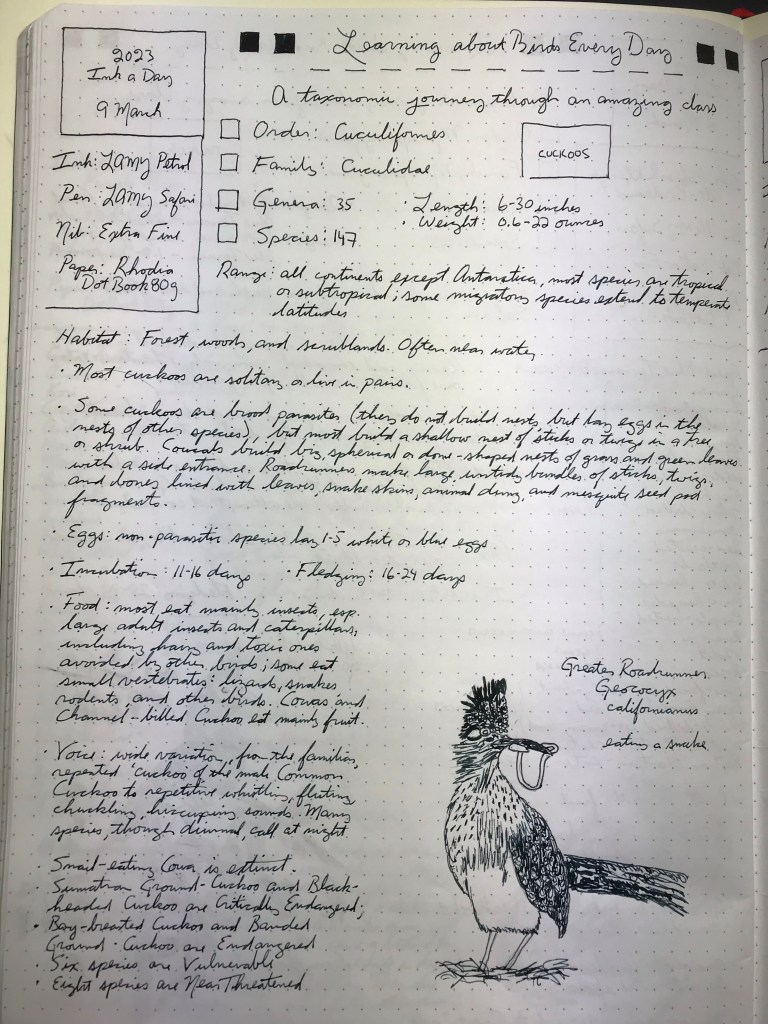 2023
Ink a Day
9 March
Learning about Birds Every Day
A taxonomic journey through an amazing class
Ink: LAMY Petrol
Pen: LAMY Safari
Nib: Extra Fine
Paper: Rhodia
Dot Book 80g
Order: Cuculiformes
Family: Cuculidae
Genera: 35
Species: 147
CUCKOOS
· Length: 6-30 inches
· Weight: 0.6-22 ounces
Range: all continents except Antarctica, most species are tropical
or subtropical; some migratory species extend to temperate
latitudes
Habitat: Forest, woods, and scrublands. Often near water
· Most cuckoos are solitary or live in pairs.
· Some cuckoos are brood parasites (they do not build nests, but lay eggs in the
nests of other species), but most build a shallow nest of sticks or twigs in a tree
or shrub. Coucals build big, spherical or dome-shaped nests of grass and green leaves
with a side entrance. Roadrunners make large, untidy bundles of sticks, twigs,
and bones lined with leaves, snake skins, animal dung, and mesquite seed pod
fragments.
· Eggs: non-parasitic species lay 1-5 white or blue eggs
· Incubation: 11-16 days · Fledging: 16-24 days
· Food: most eat mainly insects, esp.
large adult insects and caterpillars,
including hairy and toxic ones
avoided by other birds; some eat
small vertebrates: lizards, snakes
rodents, and other birds. Couas and
Channel-billed Cuckoo eat mainly fruit.
· Voice: wide variation, from the familiar,
repeated 'cuckoo' of the male Common
Cuckoo to repetitive whistling, fluting
chuckling, hiccuping sounds. Many
species, though diurnal, call at night
· Snail-eating Coua is extinct.
· Sumatran Ground-Cuckoo and Black-
headed Cuckoo are Critically Endangered;
· Bay-breasted Cuckoo and Banded
Ground-Cuckoo are Endangered
· Six species are Vulnerable
· Eight species are Near Threatened
Greater Roadrunner
Geococcyx
californianus
eating a snake